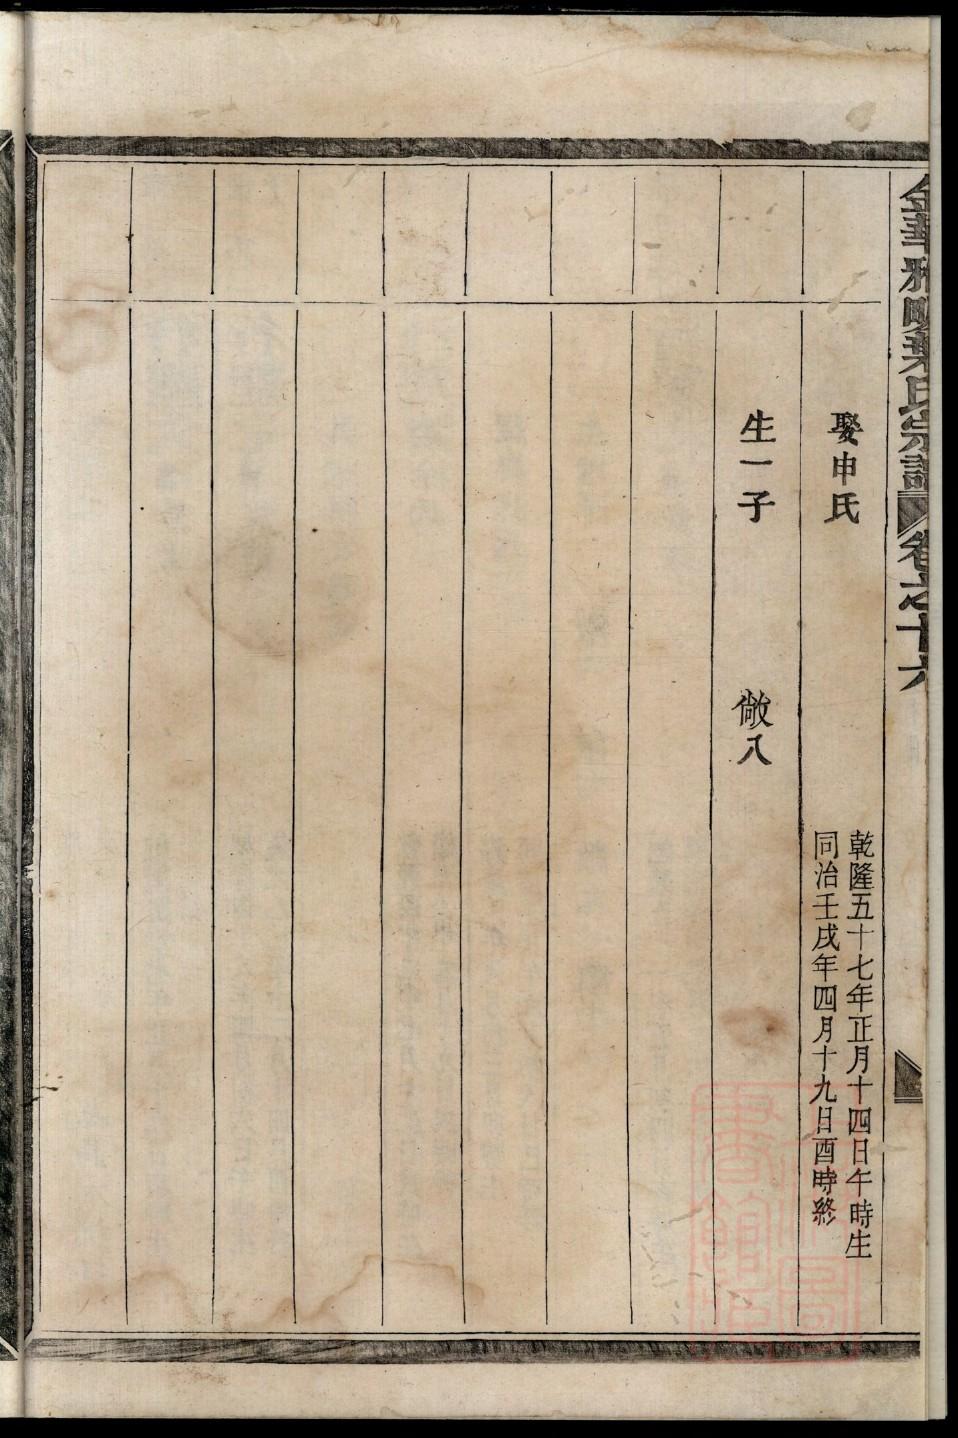 金華雅畈葉氏宗譜 卷之十六
娶申氏
乾隆五十七年正月十四日午時生
同治壬戌年四月十九日酉時終
生一子 敞八